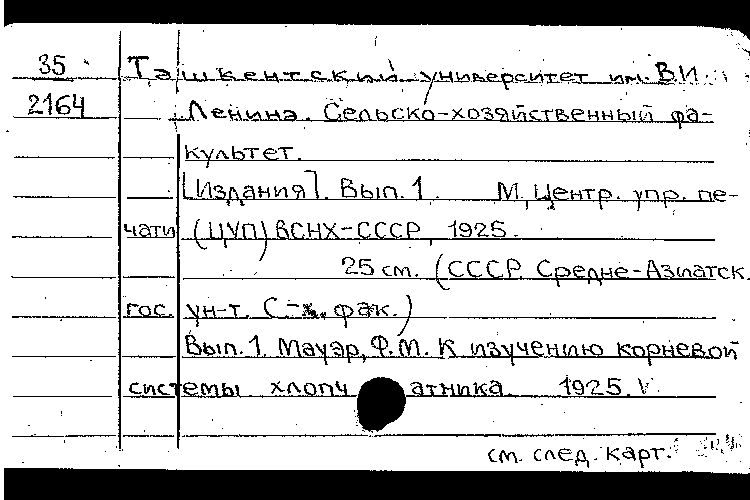 35 Ташкентский университет им. В.И.
2164 Ленина. Сельско-хозяйственный фа-
культет.
[Издания]. Вып. 1. М, Центр. упр. пе-
чати (ЦУП) ВСНХ-СССР, 1925.
25 см. (СССР. Средне-Азиатск.
гос. ун-т. С-х. фак.)
Вып. 1. Мауэр, Ф.М. К изучению корневой
системы хлопчатника. 1925. V
см. след. карт.